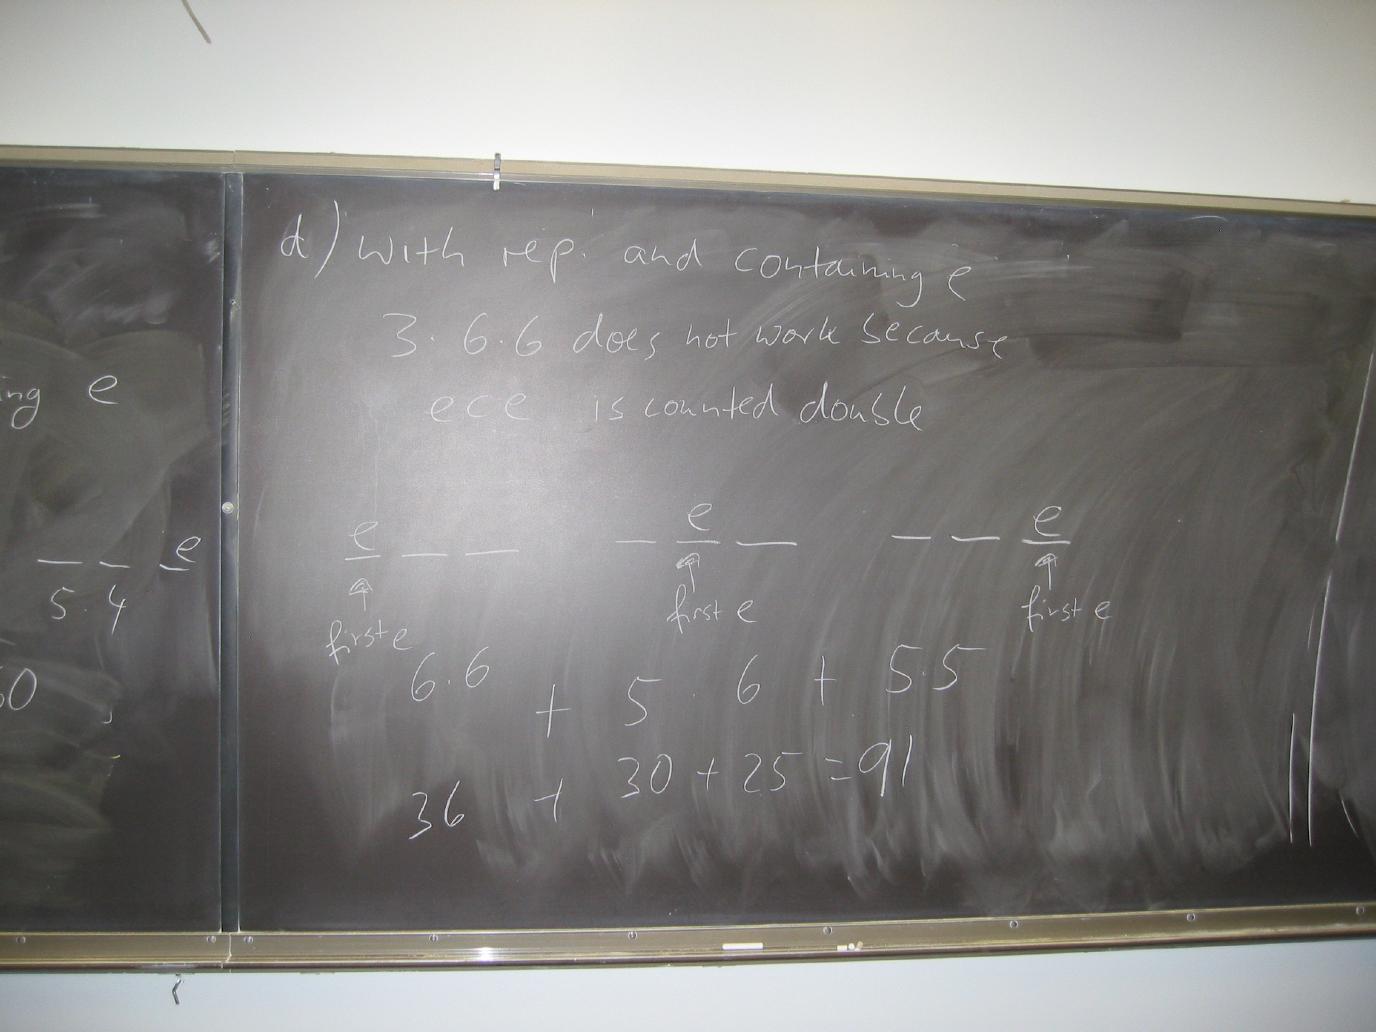 ing e
_ _ e
5.4
d) with rep. and containing e
3.6.6 does not work because
ece is counted double
e _ _ _ e _ _ _ e
first e first e first e
6.6 + 5.6 + 5.5
36 + 30 + 25 = 91